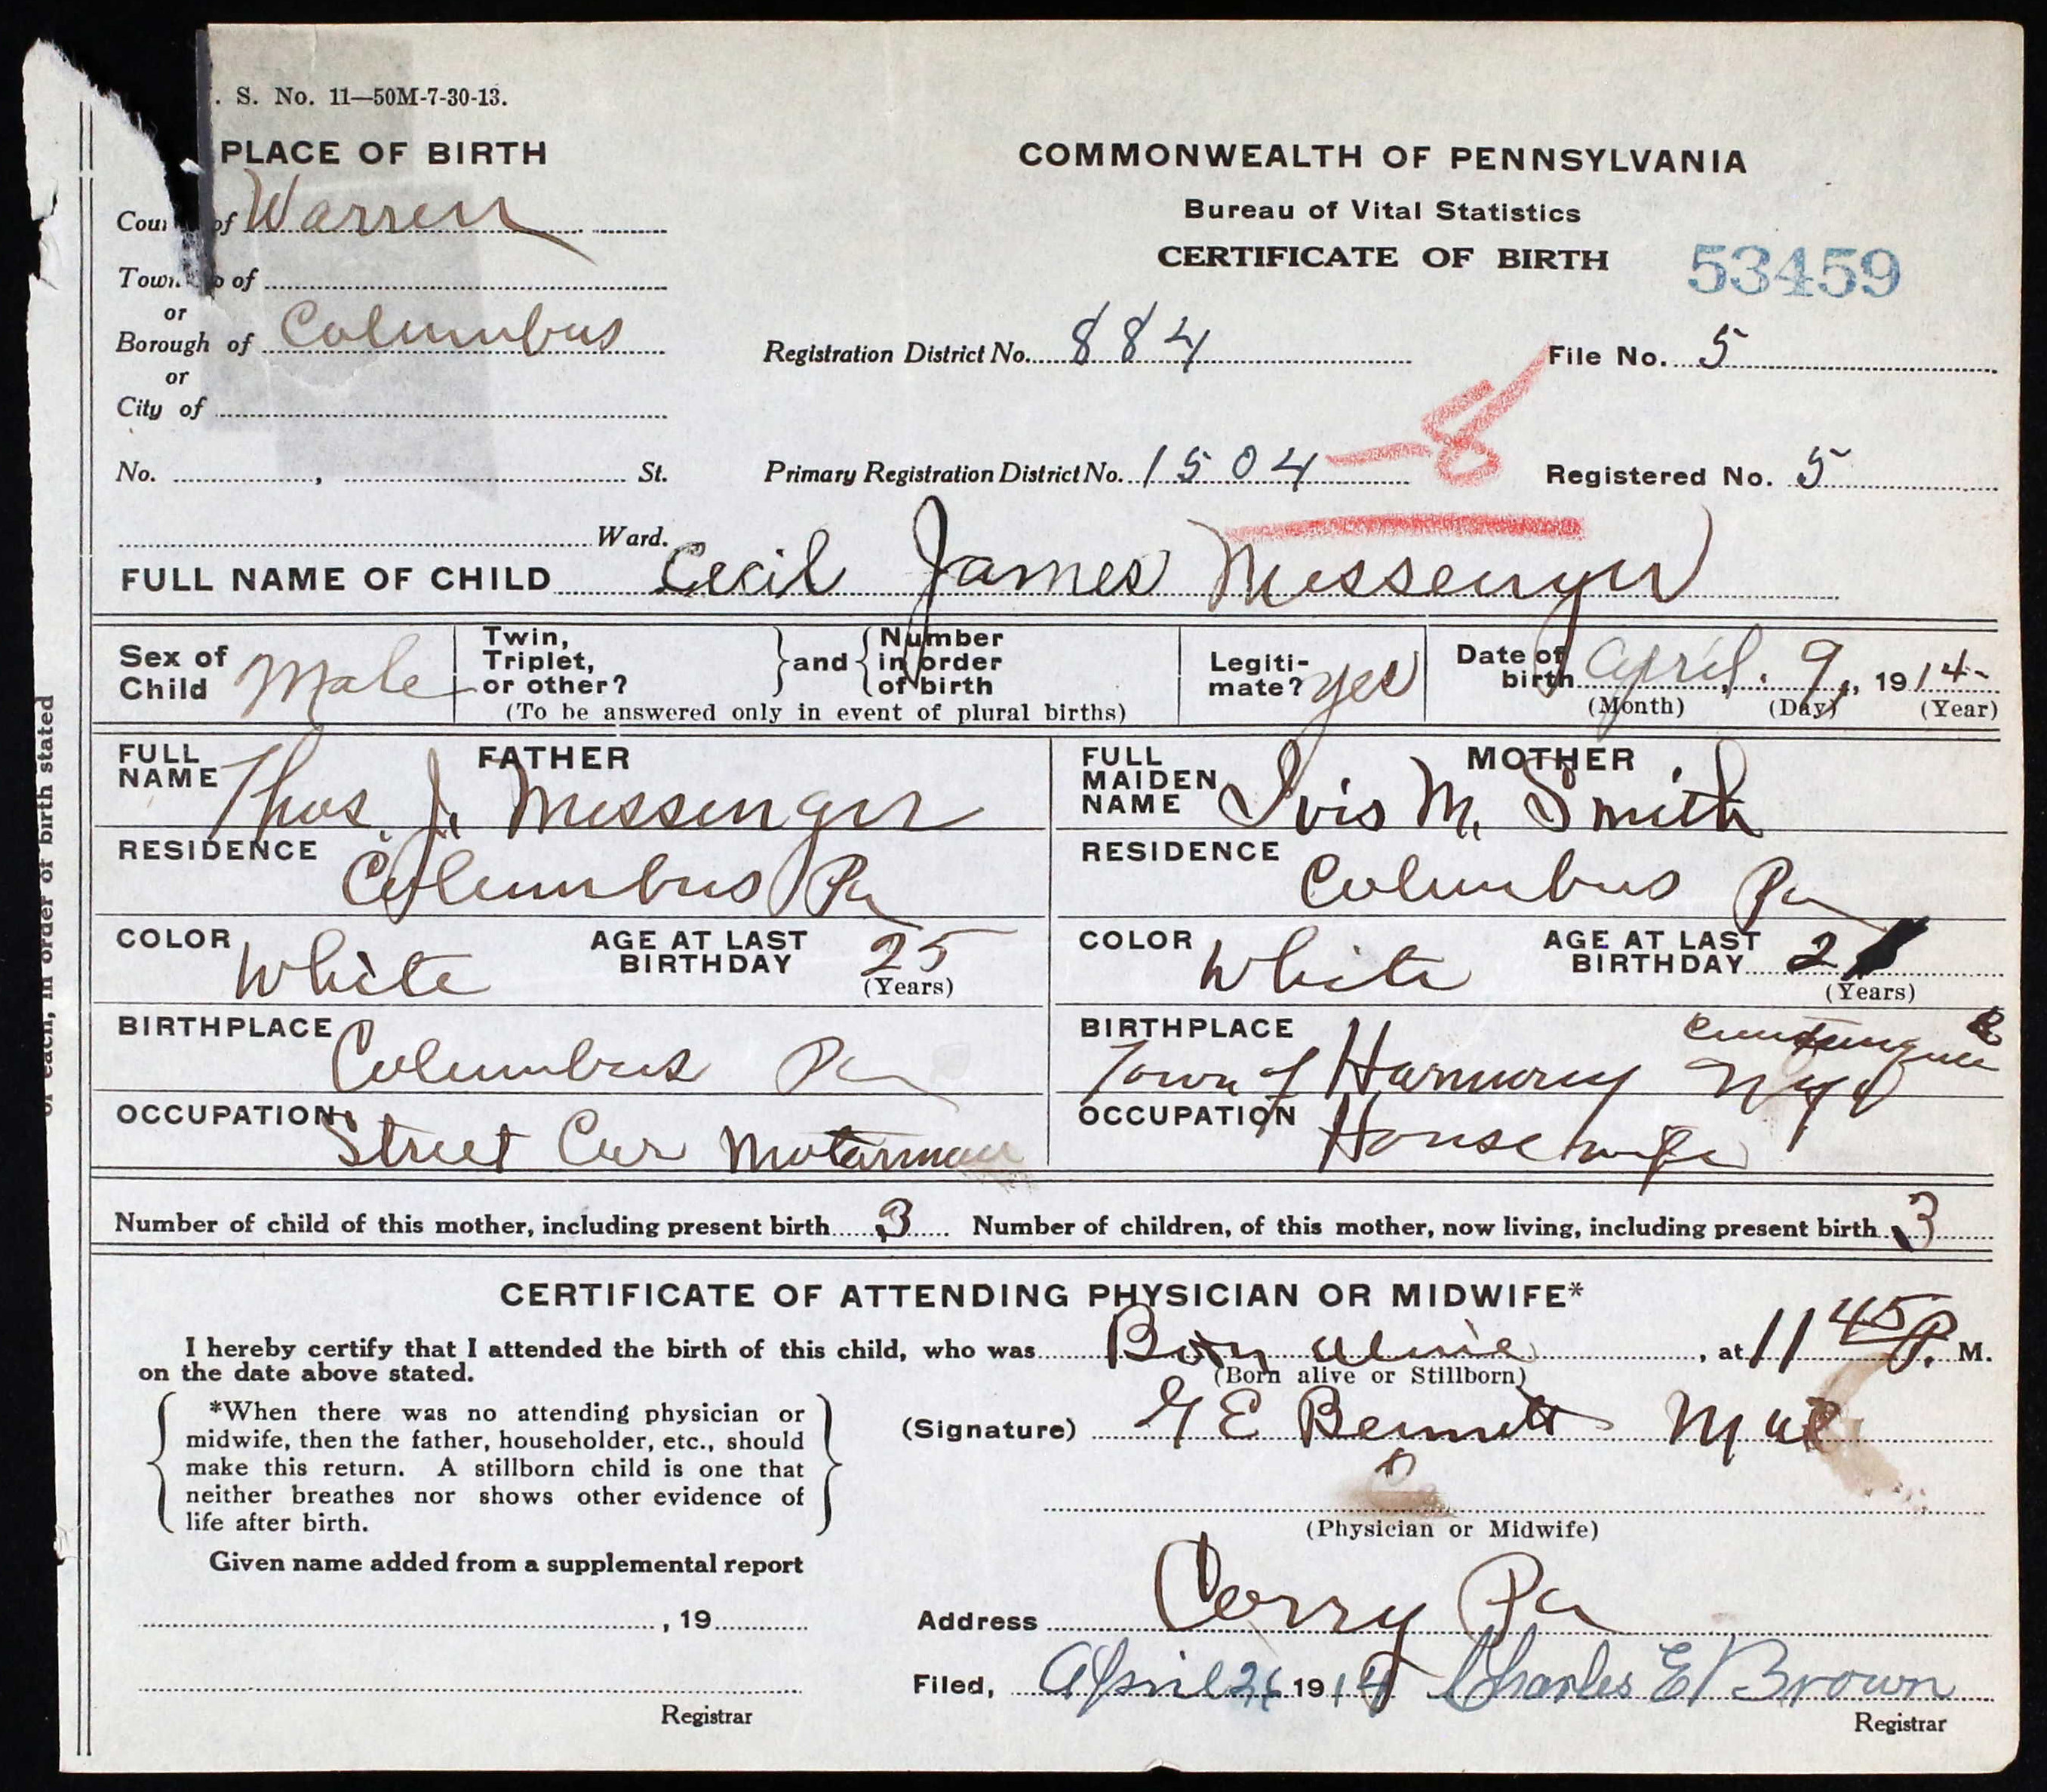 . S. No. 11—50M-7-30-13.
PLACE OF BIRTH
of Warren
of
or
Borough of Columbus
or
City of
No. , St.
Ward.
COMMONWEALTH OF PENNSYLVANIA
Bureau of Vital Statistics
CERTIFICATE OF BIRTH
53459
Registration District No. 884
File No. 5
Primary Registration District No. 1504 -8
Registered No. 5
FULL NAME OF CHILD Cecil James Messenger
Sex of Child Male
Twin, Triplet, or other?
and
Number in order of birth
(To be answered only in event of plural births)
Legitimate? yes
Date of birth April. 9, 1914-
(Month) (Day) (Year)
FATHER
FULL NAME Thos. J. Messenger
RESIDENCE Columbus Pa
COLOR White
AGE AT LAST BIRTHDAY 25
(Years)
BIRTHPLACE Columbus Pa
OCCUPATION Street Car Motorman
MOTHER
FULL MAIDEN NAME Ivis M. Smith
RESIDENCE Columbus Pa
COLOR White
AGE AT LAST BIRTHDAY
(Years)
BIRTHPLACE Town of Harmony N.Y.
OCCUPATION Housewife
Number of child of this mother, including present birth 3
Number of children, of this mother, now living, including present birth 3
CERTIFICATE OF ATTENDING PHYSICIAN OR MIDWIFE*
I hereby certify that I attended the birth of this child, who was Born alive, at 11 45 P. M.
on the date above stated.
(Born alive or Stillborn)
*When there was no attending physician or
midwife, then the father, householder, etc., should
make this return. A stillborn child is one that
neither breathes nor shows other evidence of
life after birth.
Given name added from a supplemental report
, 19
Registrar
(Signature) G E Bennett
(Physician or Midwife)
Address Corry Pa
Filed, April 26 1914 Charles E Brown
Registrar
of each, in order of birth stated